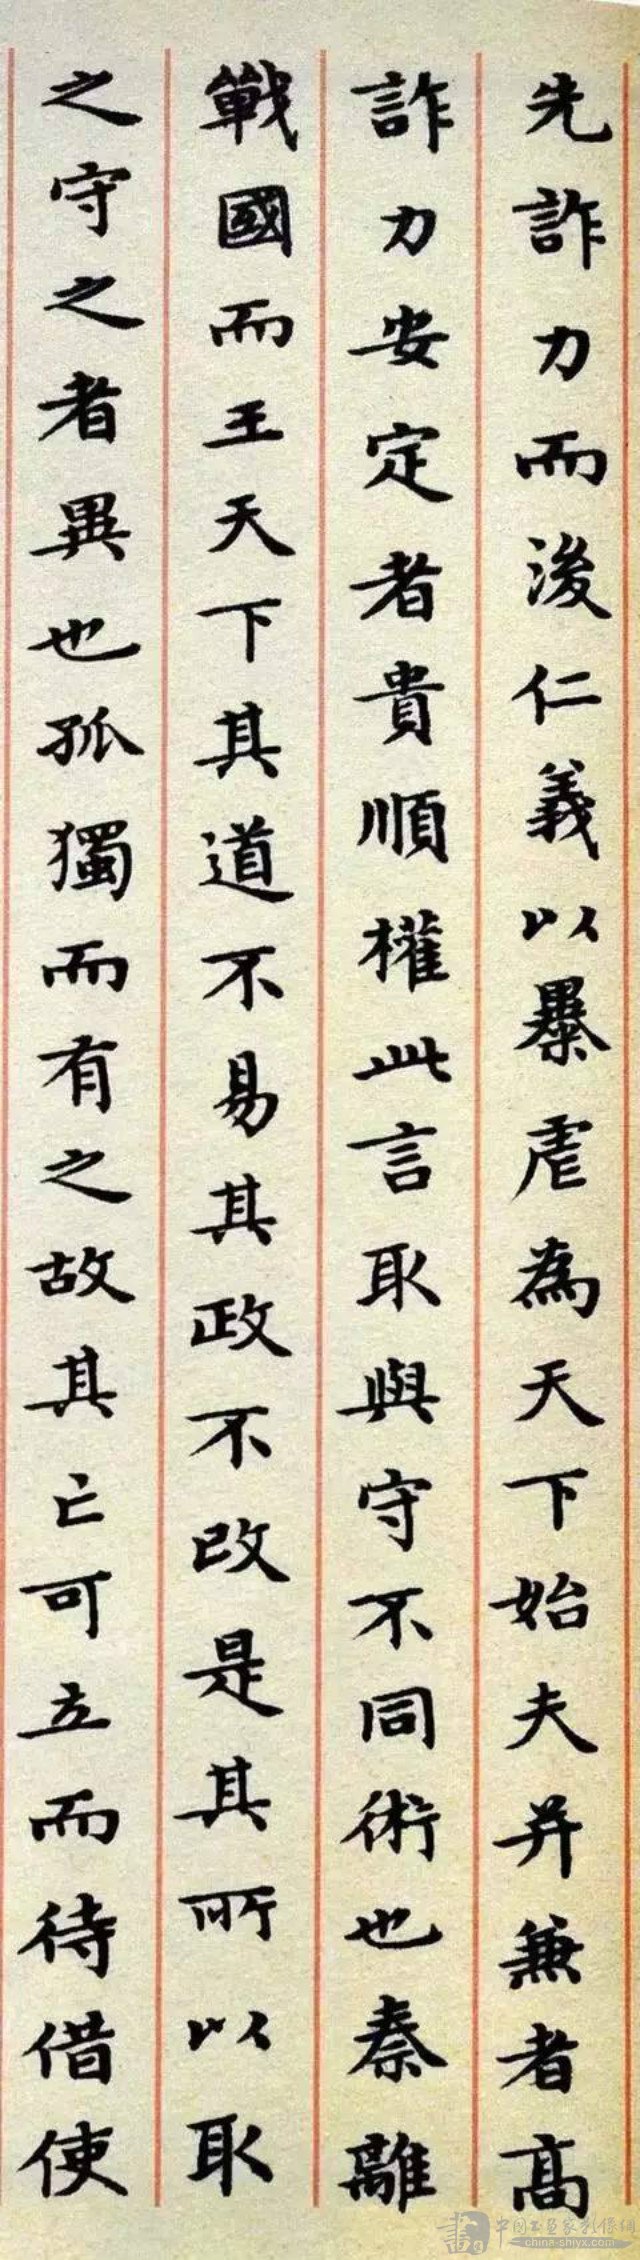 先詐力而後仁義以暴虐為天下始夫并兼者高
詐力安定者貴順權此言取與守不同術也秦離
戰國而王天下其道不易其政不改是其所以取
之守之者異也孤獨而有之故其亡可立而待借使
中国书画家影像网
china-shyx.com